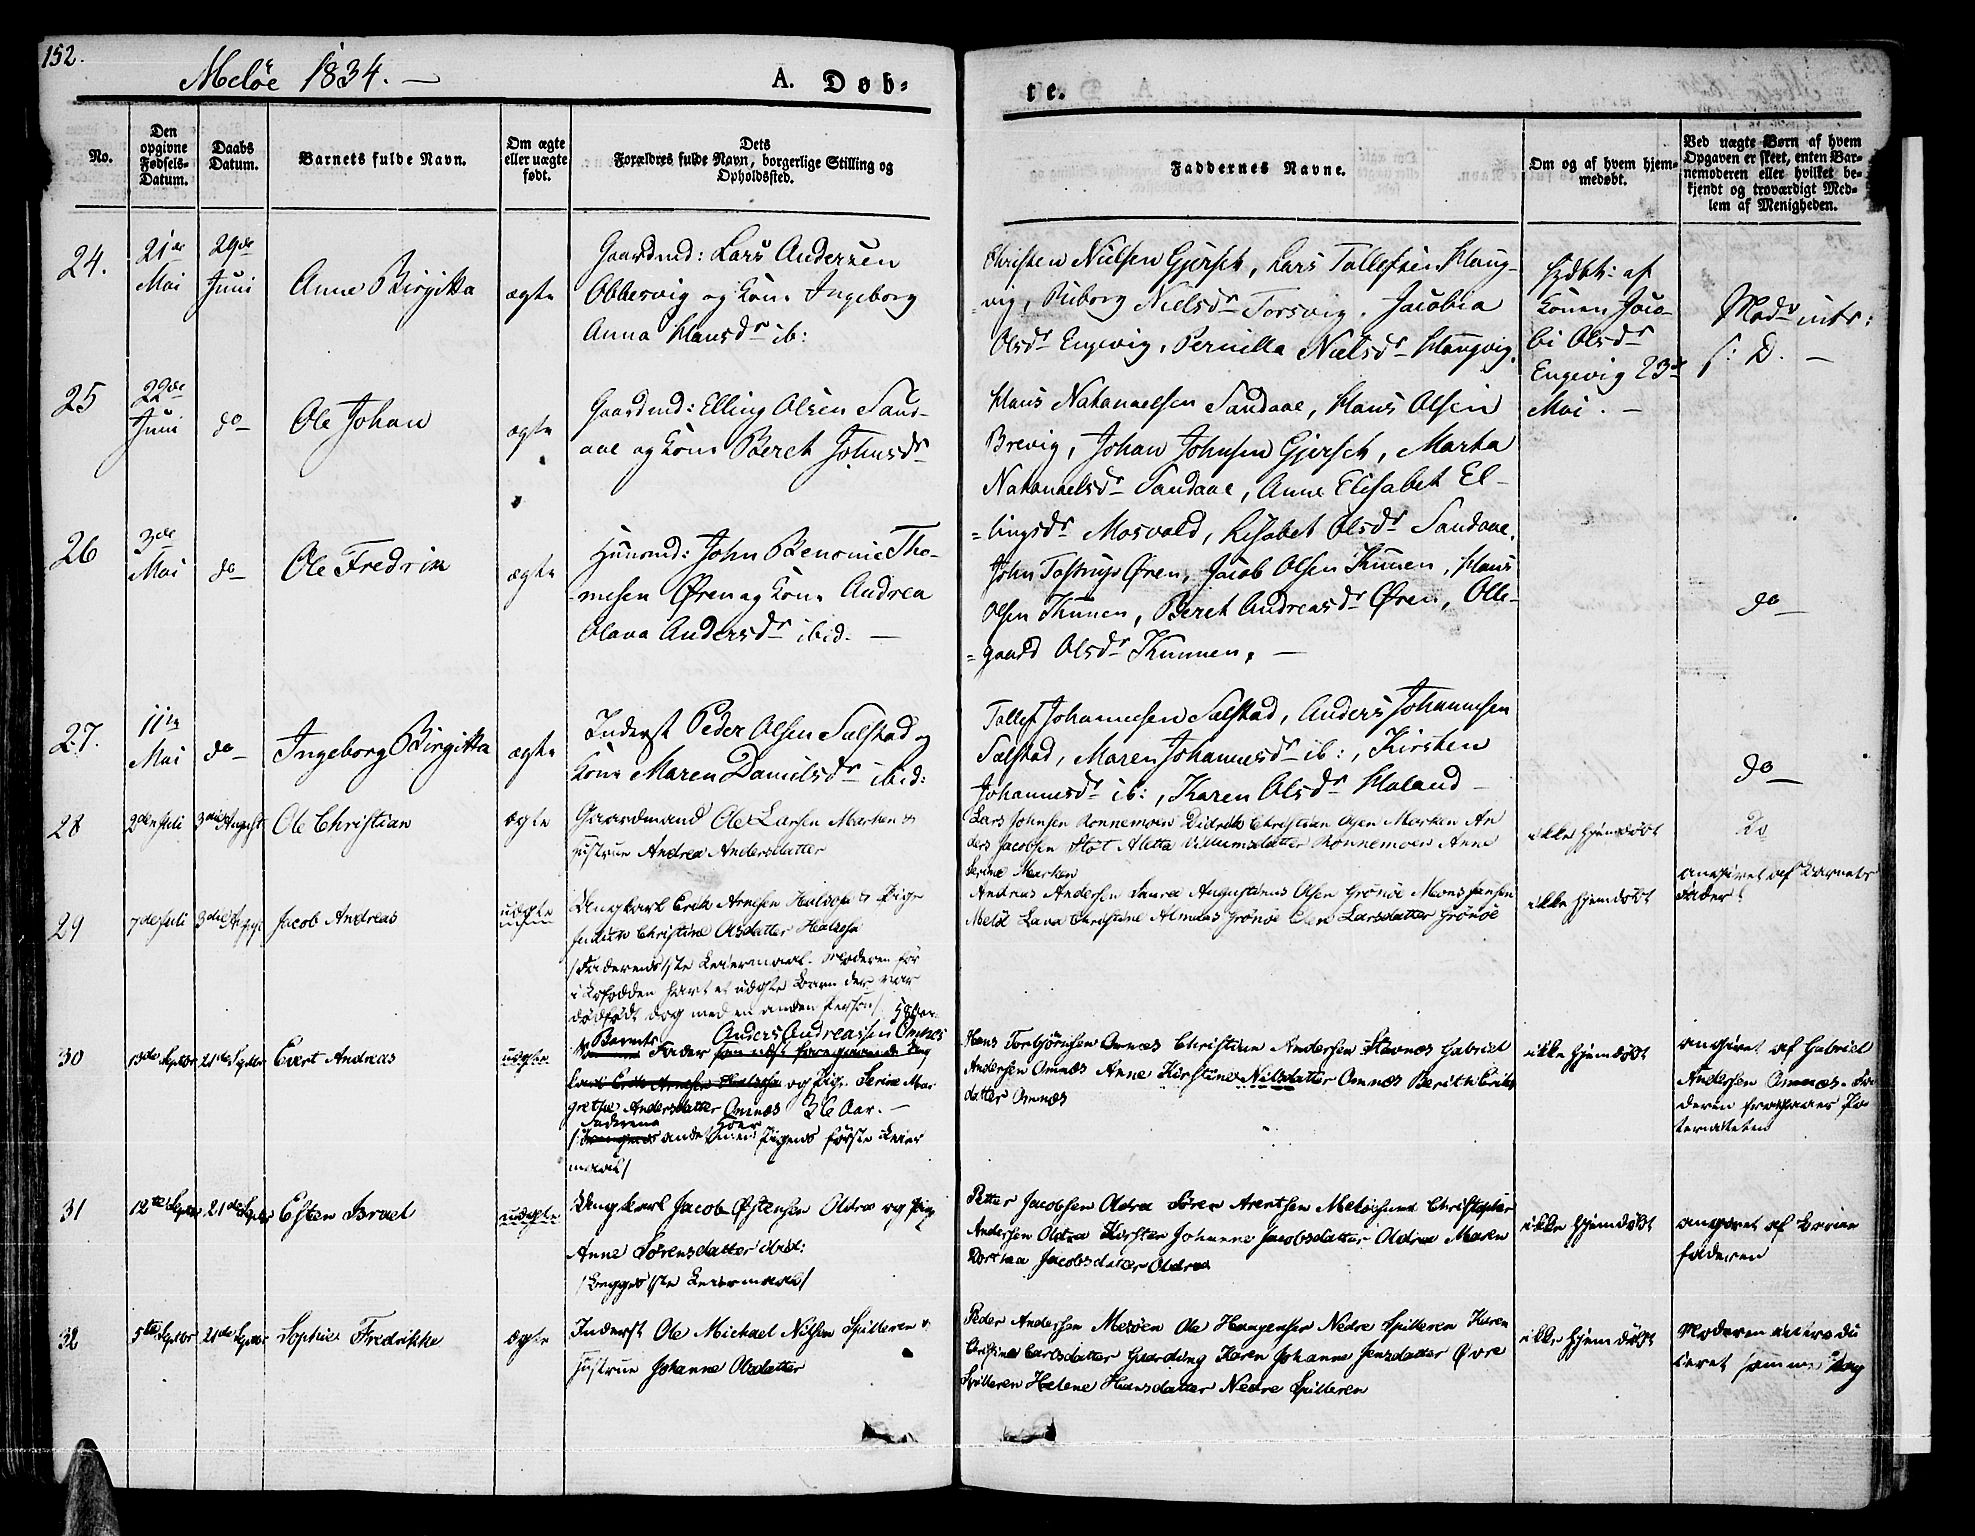 152.
Meløe 1834. —
A. Døb-
te.
No.
Den opgivne Fødsels-Datum.
Daabs Datum.
Barnets fulde Navn.
Om ægte eller uægte født.
Dets Forældres fulde Navn, borgerlige Stilling og Opholdssted.
Faddernes Navne.
Om og af hvem hjemmedøbt.
Ved uægte Børn af hvem Opgaven er skeet, enten Barnemoderen eller hvilket bekjendt og troværdigt Medlem af Menigheden.
24.
21de Mai
29de Juni
Anne Birgitta
ægte
Gaardmd: Lars Andersen
Obbesvig og Kone Ingeborg
Anna Hansdr ib:
Christen Nielsen Gjersek, Lars Tollefsen Haug-
vig, Ruborg Nielsdr Torsvig, Jacobia
Olsdr Engevig, Pernilla Nielsdr Haugvig.
hjdbt: af
Konen Jaco-
bi Olsdr
Engevig 23de
Mai. —
Modr intr:
s: D. —
25
22de Juni
do
Ole Johan
ægte
Gaardmd: Elling Olsen Sand-
aae og Kone Beret Johnsdr
Hans Nahanaelsen Sandaae, Hans Olsen
Brevig, Johan Johnsen Gjersek, Marta
Nahanaelsdr Sandaae, Anne Elisabet El-
-lingsdr Mosvold, Lisabet Olsdr Sandaae.
26
3de Mai
do
Ole Fredrik
ægte
Huusmd: John Benonie Tho-
mesen Øren og Kone Andrea
Olava Andersdr ibid. —
John Tostrup Øren, Jacob Olsen Kunnen, Hans
Olsen Kunnen, Beret Andreasdr Øren, Olle-
=gaard Olsdr Kunnen. —
do
27.
11te Mai
do
Ingeborg Birgitta
ægte
Inderst Peder Olsen Selstad og
Kone Maren Danielsdr ibid:
Tollef Johannesen Selstad, Anders Johannesen
Selstad, Maren Johannesdr ib:, Kirsten
Johannesdr ib:, Karen Olsdr Haland —
do
28
2den Juli
3die August
Ole Christian
ægte
Gaardmand Ole Larsen Marken &
Hustrue Andrea Andersdatter
Lars Johnsen Rønnemoen Didrik Christian Olsen Marken An
ders Jacobsen Støt Aletta Villumsdatter Rønnemoen Anne
Serine Marken
ikke hjemdøbt
Do
29
7de Juli
3die Augst
Jacob Andreas
uægte
Ungkarl Erik Arnesen Halsen & Pige
Christine Olsdatter Halsen
/Faderens 1ste Leiermaal. Moderen før
i havt et uægte Barn der var
dødfødt dog med en anden Person/
Andreas Andersen Augustinus Olsen Grønøe Mons Hansen
Meløe Lava Christine Almaas Grønøe Elen Larsdatter Grønøe
ikke hjemdøbt
angivet af Barnets
Fader!
30
13de Septbr
21de Septbr
Evert Andreas
uægte
Barnets Anders Andreassen Omnes 58 Aar
Fader og Pige Serine Mar
grethe Andersdatter Omnæs 36 Aar. —
/Faderens andet men Pigens første Leier
maal/
Hans Torbjørnsen Omnes Christian Andersen Stavnes Gabriel
Andersen Omnæs Anne Kirstine Nilsdatter Omnæs Berith Eriks
datter Omnæs
ikke hjemdøbt
angivet af Gabriel
Andersen Omnæs. Fa
deren fragaaer Pa
terniteten
31
12te Septbr
21de Septbr
Esten Israel
uægte
Ungkarl Jacob Østensen Oldra og Pige
Anne Sørensdatter ibid:
/Begges 1ste Leiermaal/
Petter Jacobsen Oldra Søren Arentsen Meløesund Christopher
Andersen Oldra Kirsten Johanne Jacobsdatter Oldra Maren
Dorthea Jacobsdatter Oldra
ikke hjemdøbt
angivet af Barne
faderen
32
5te Septbr
21de Septbr
Sophie Fredrikke
ægte
Inderst Ole Michael Nilsen Spilderen &
Hustrue Johanne Olsdatter
Peder Andersen Mesøen Ole Haagensen Nedre Spilderen Karen
Christina Carlsdatter Gaarding Karen Johanne Jensdatter Øvre
Spilderen Helene Hansdatter Nedre Spilderen
ikke hjemdøbt
Moderen introdu
ceret samme Dag